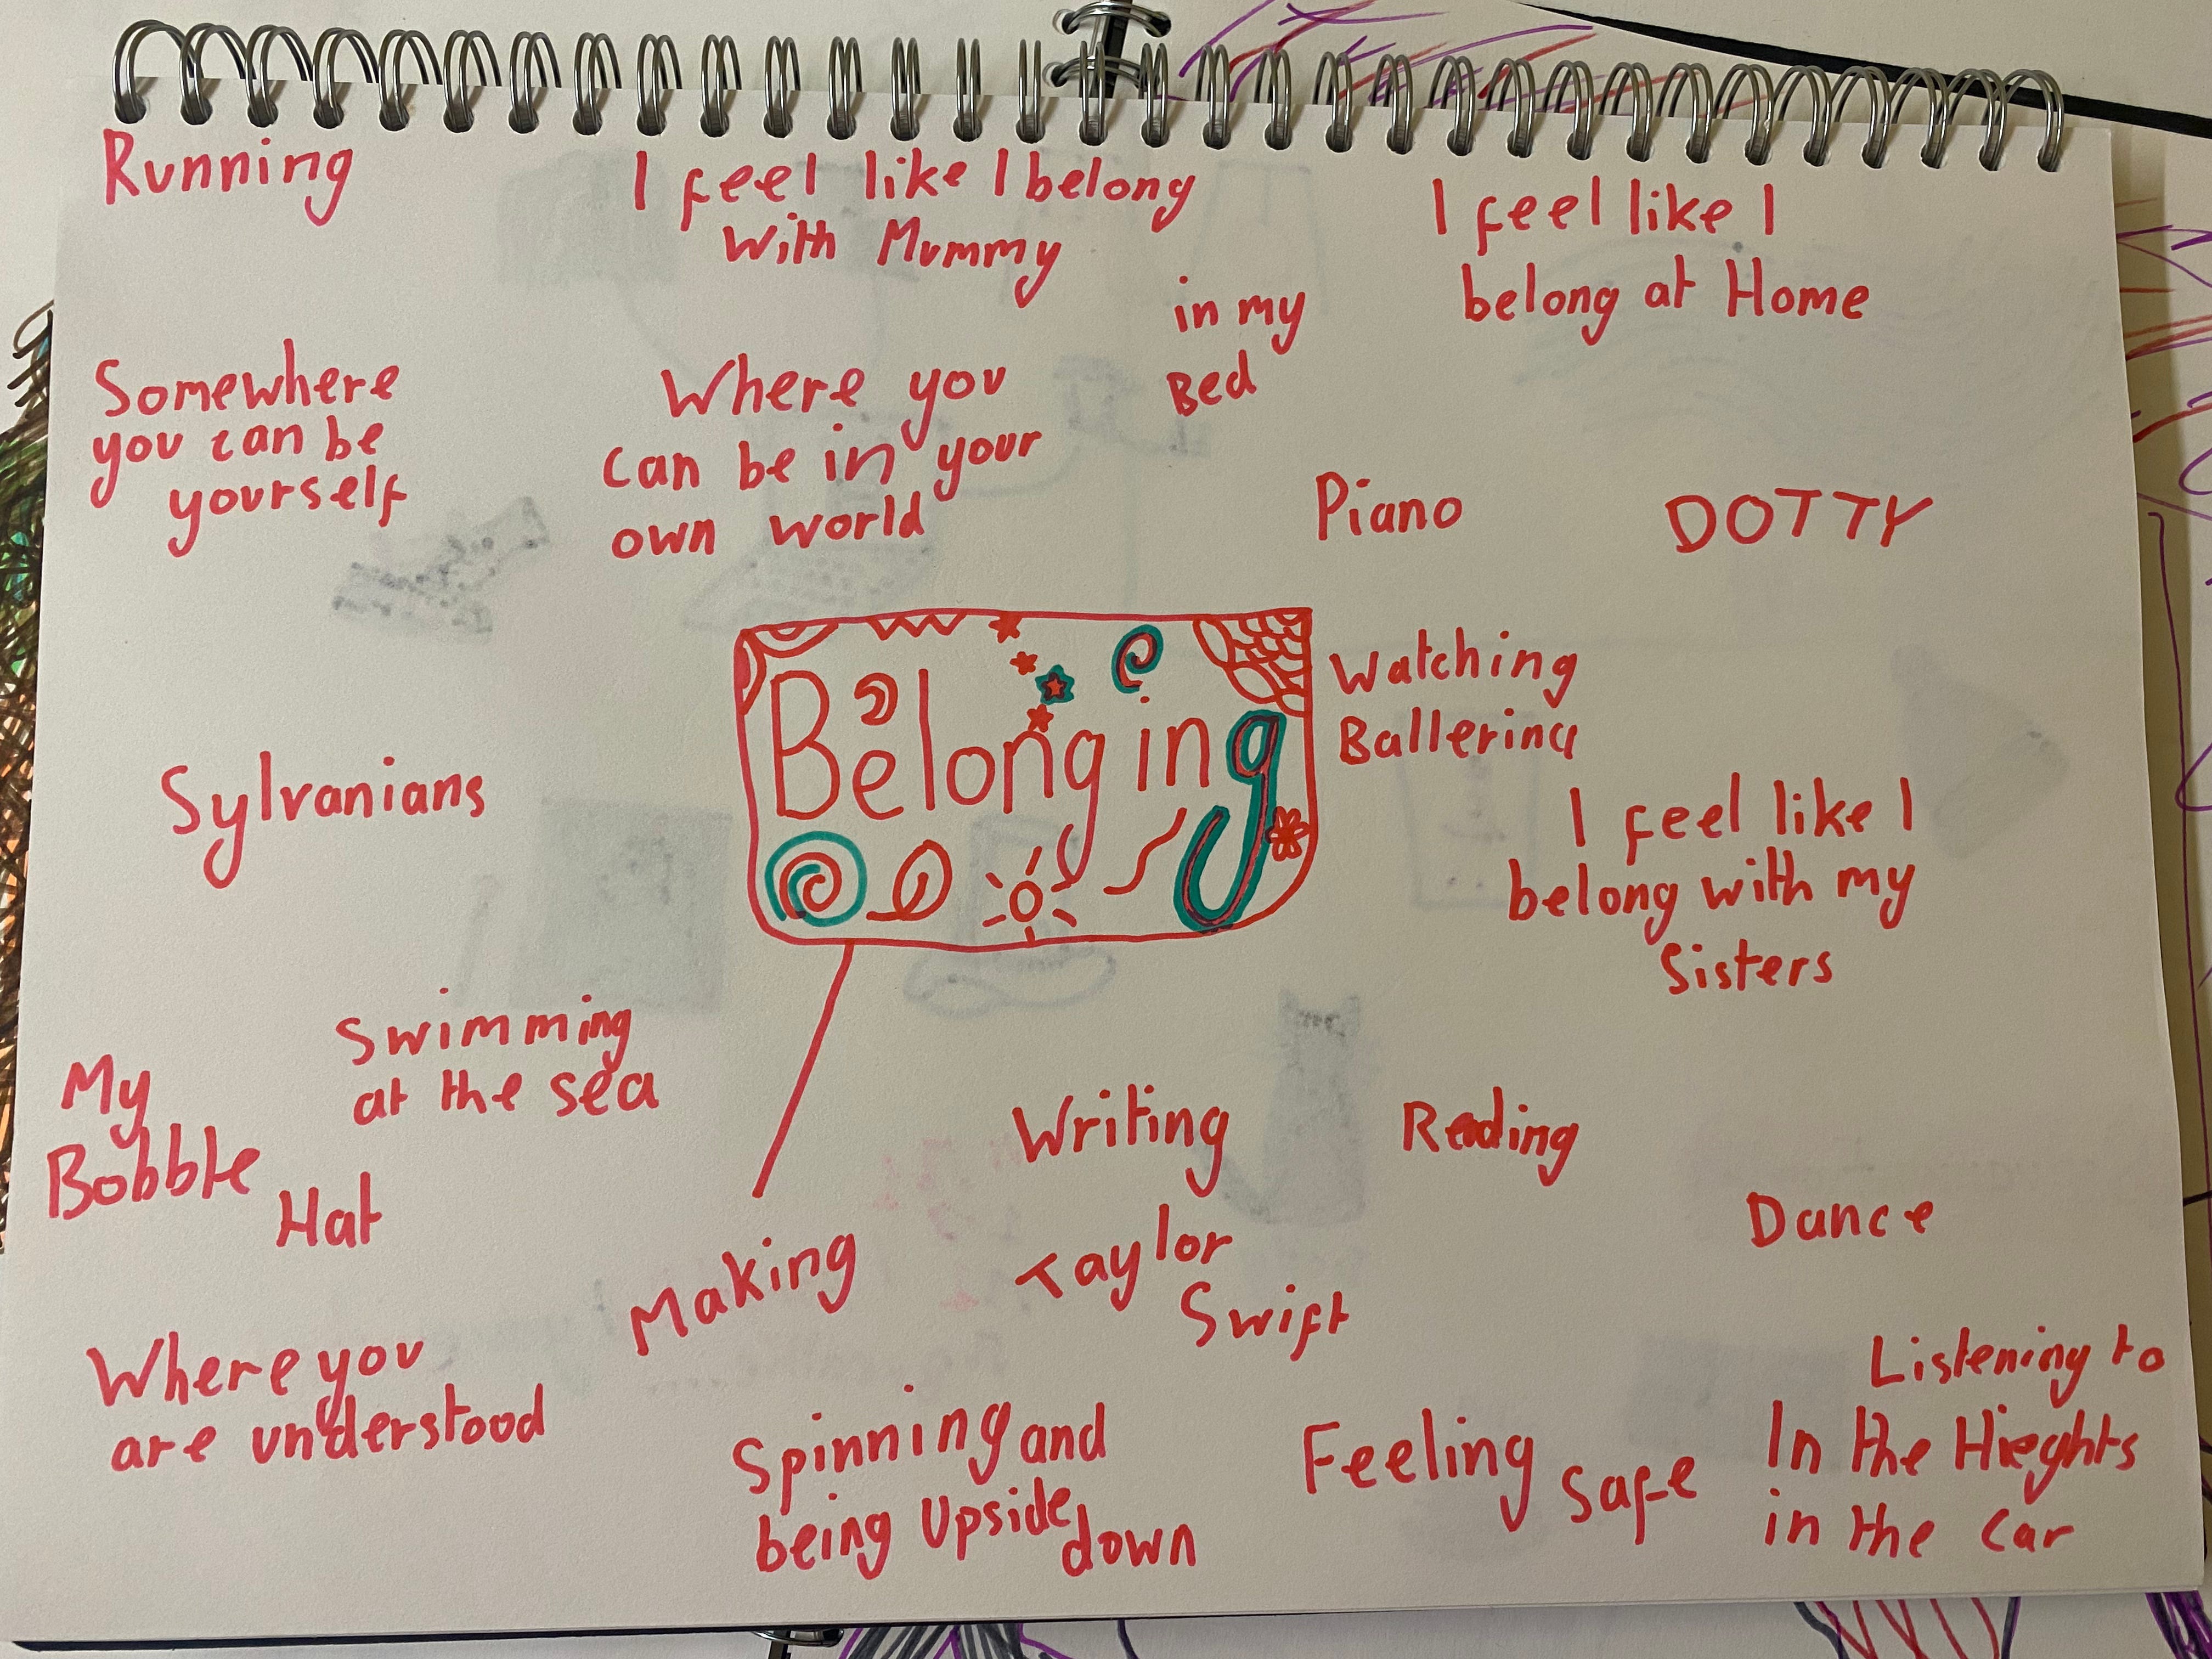 Running
I feel like I belong
with Mummy
I feel like I
belong at Home
in my
Bed
Somewhere
you can be
yourself
Where you
can be in your
own world
Piano
DOTTY
Belonging
Watching
Ballerina
Sylvanians
I feel like I
belong with my
Sisters
Swimming
at the sea
My
Bobble
Hat
Writing
Reading
Dance
Making
Taylor
Swift
Where you
are understood
Spinning and
being Upside
down
Feeling
safe
Listening to
In the Hieghts
in the car